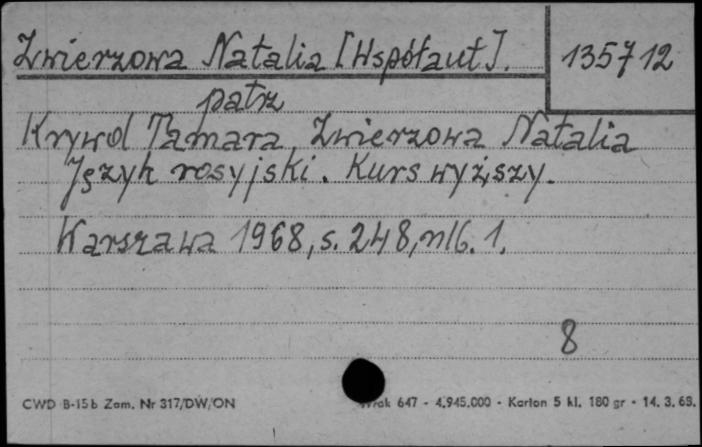 Zwierzowa Natalia [Współaut]. 135712
patrz
Krywol Tamara, Zwierzowa Natalia
Język rosyjski. Kurs wyższy.
Warszawa 1968, s. 248, nlb. 1.
8
CWD B-15b Zam. Nr 317/DW/ON Wrak 647 - 4.945.000 - Karton 5 kl. 180 gr - 14. 3. 63.